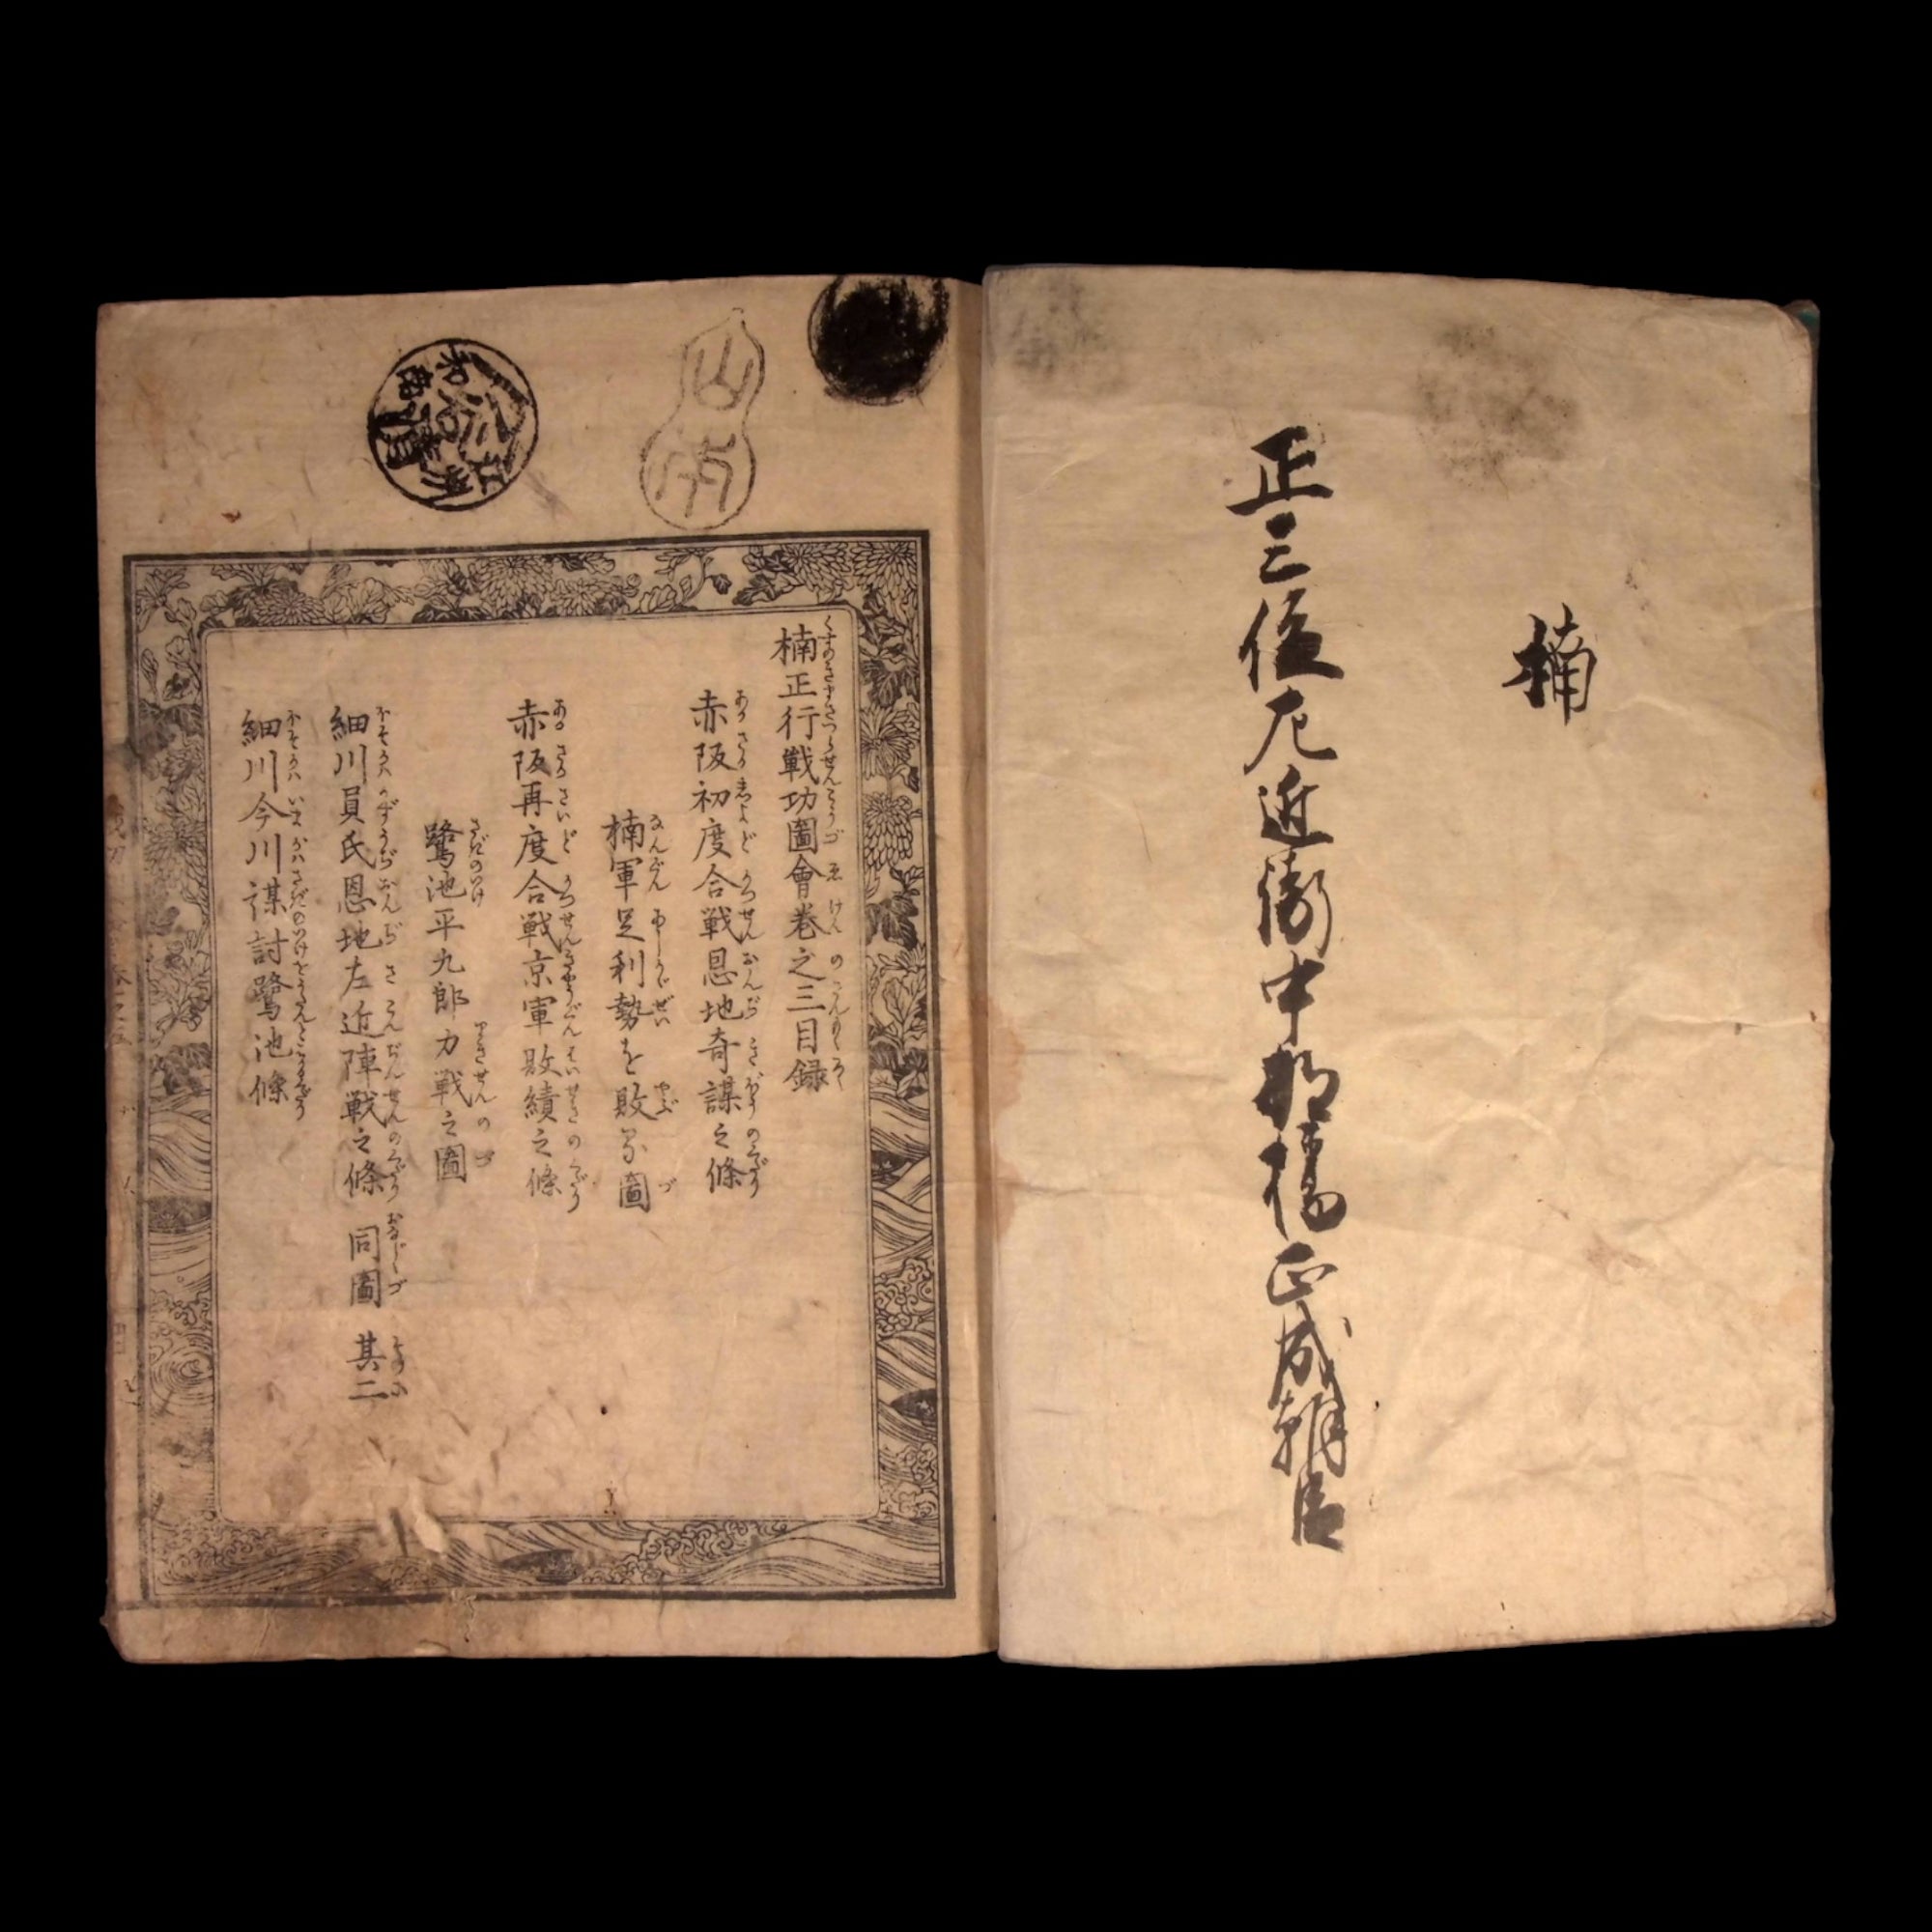 楠
正三位左近衛中将橘正成朝臣
山
楠正行戦功圖會巻之三目録
赤阪初度合戦恩地奇謀之條
楠軍足利勢を敗る圖
赤阪再度合戦京軍敗績之條
鷺池平九郎力戦之圖
細川員氏恩地左近陣戦之條 同圖 其二
細川今川謀討鷺池條